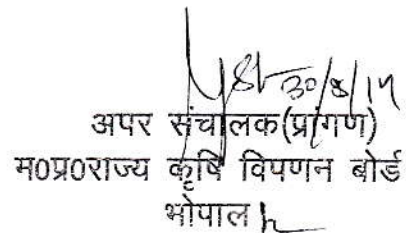 30/8/14
अपर संचालक(प्रांगण)
म0प्र0राज्य कृषि विपणन बोर्ड
भोपाल